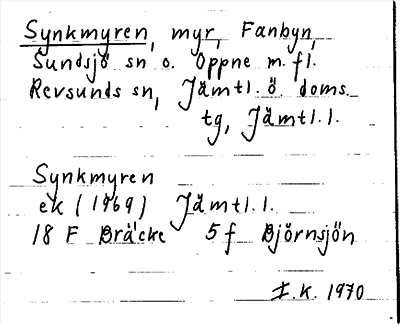 Synkmyren, myr, Fanbyn,
Sundsjö sn o. Oppne m.fl.
Revsunds sn, Jämtl. ö. doms.
tg, Jämtl. l.
Synkmyren
ek (1969) Jämtl. l.
18 F Bräcke 5 f Björnsjön
I.K. 1970